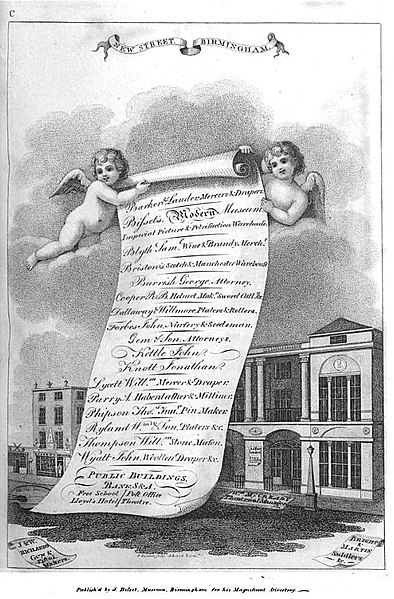 C
NEW STREET, BIRMINGHAM.
Barker & Lander, Mercers & Drapers
Bisset's Modern Museum
Imperial Picture & Petrifaction Warehouse
Blyth Sam.l Wine & Brandy Merch.t
Bristow's Scotch & Manchester Warehouse
Burrish George, Attorney.
Cooper R. B. Helmet Mak.r Sword Cutl.r &c
Dallaway & Willmore, Platers & Rollers.
Forbes John, Nursery & Seedsman.
Gem & Son, Attorneys,
Kettle John,
Knott Jonathan,
Lycett Will.m Mercer & Draper.
Parry A. Haberdasher & Milliner.
Phipson Tho.s Jun.r Pin Maker.
Ryland W.m & Son, Platers &c.
Thompson Will.m Stone Mason.
Wyatt John, Woollen Draper &c.
PUBLIC BUILDINGS,
BANKS &A
Free School Post Office
Lloyd's Hotel Theatre.
J & W.
RICHARDS
Gun &
Pistol
Makers.
BRIGHT
& MARTIN
Saddlers
&c.
Publish'd by J. Bisset, Museum, Birmingham for his Magnificent Directory